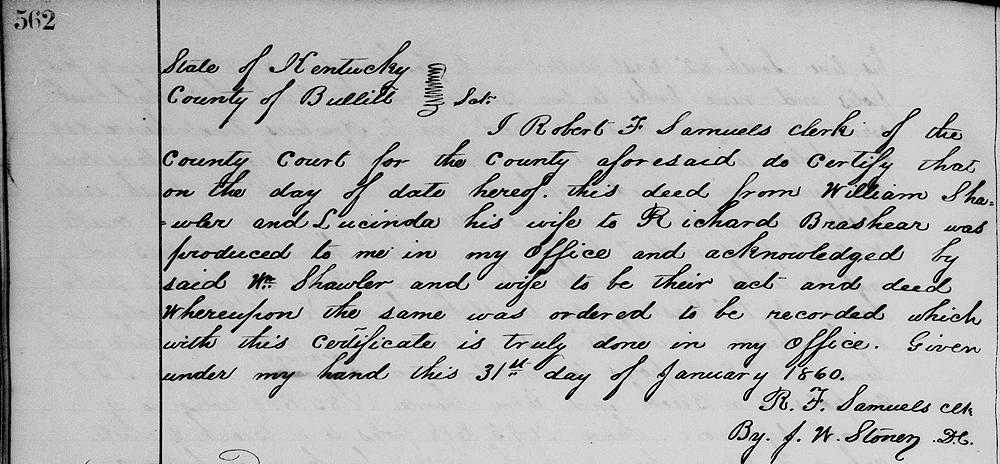 562
State of Kentucky
County of Bullitt Sct.
I Robert F Samuels clerk of the
County Court for the County aforesaid do certify that
on the day of date hereof. this deed from William Sha=
=wler and Lucinda his wife to Richard Brashear was
produced to me in my office and acknowledged by
said Wm Shawler and wife to be their act and deed
Whereupon the same was ordered to be recorded which
with this certificate is truly done in my office. Given
under my hand this 31st day of January 1860.
R. F. Samuels clk
By. J. W. Stoner D.C.